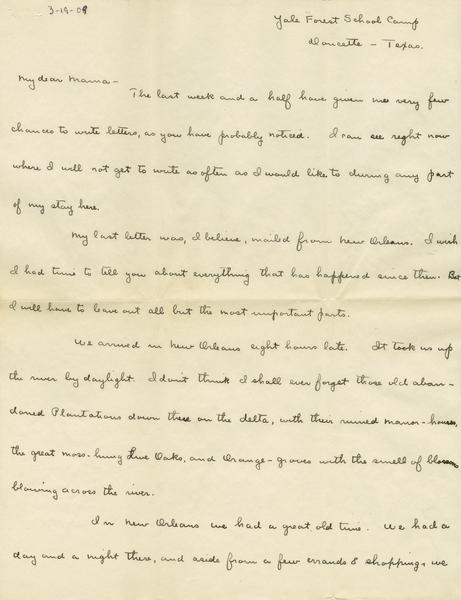 3-19-09
Yale Forest School Camp
Doucette - Texas.
My dear Mama -
The last week and a half have given me very few
chances to write letters, as you have probably noticed. I can see right now
where I will not get to write as often as I would like to during any part
of my stay here.
My last letter was, I believe, mailed from New Orleans. I wish
I had time to tell you about everything that has happened since then. But
I will have to leave out all but the most important parts.
We arrived in New Orleans eight hours late. It took us up
the river by daylight. I don't think I shall ever forget those old aban-
doned Plantations down there on the delta, with their ruined manor-houses,
the great moss-hung Live Oaks, and Orange-groves with the smell of blossoms
blowing across the river.
In New Orleans we had a great old time. We had a
day and a night there, and aside from a few errands & shopping, we